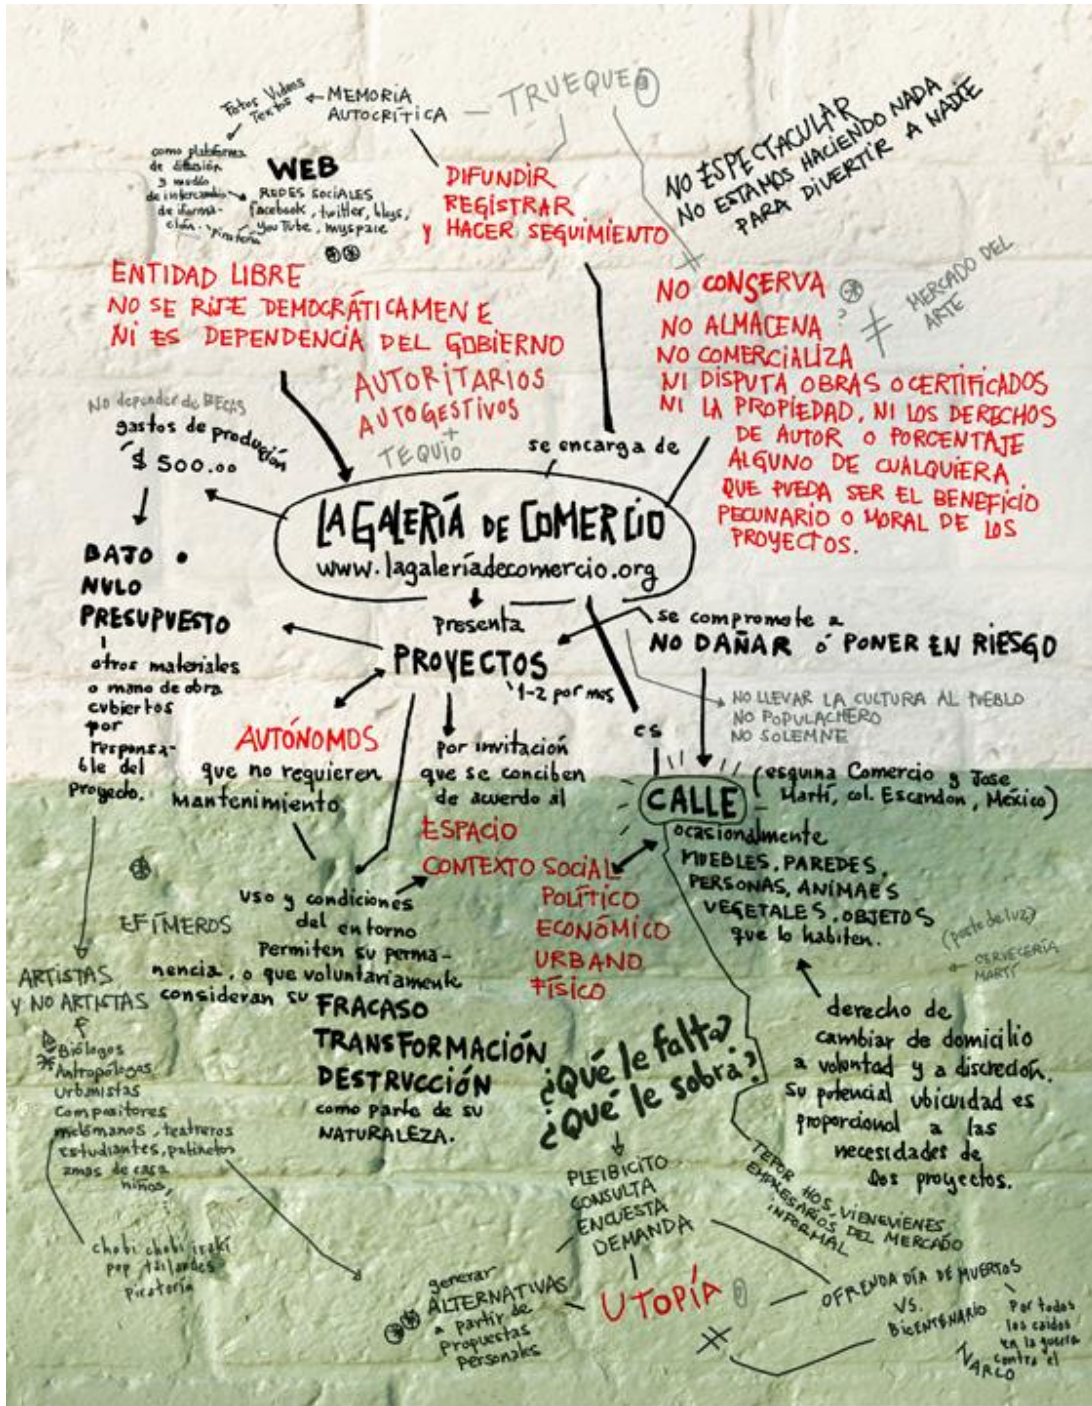 TRUEQUE
MEMORIA
AUTOCRÍTICA
Fotos Videos
Textos
como plataforma
de difusión
y modo
de intercambio
de iforma-
ción. Piratería
WEB
REDES SOCIALES
facebook, twitter, blogs,
YouTube, myspace
DIFUNDIR
REGISTRAR
y HACER SEGUIMIENTO
NO ESPECTACULAR
NO ESTAMOS HACIENDO NADA
PARA DIVERTIR A NADIE
ENTIDAD LIBRE
NO SE RIJE DEMOCRÁTICAMEN E
NI ES DEPENDENCIA DEL GOBIERNO
AUTORITARIOS
AUTOGESTIVOS
+
TEQUIO
NO CONSERVA
?
NO ALMACENA
NO COMERCIALIZA
NI DISPUTA OBRAS O CERTIFICADOS
NI LA PROPIEDAD, NI LOS DERECHOS
DE AUTOR O PORCENTAJE
ALGUNO DE CUALQUIERA
QUE PUEDA SER EL BENEFICIO
PECUNARIO O MORAL DE LOS
PROYECTOS.
≠
MERCADO DEL
ARTE
No depender de BECAS
gastos de produción
$ 500.00
se encarga de
LA GALERÍA DE COMERCIO
www.lagaleríadecomercio.org
BAJO o
NULO
PRESUPUESTO
otros materiales
o mano de obra
cubiertos
por
responsa-
ble del
proyecto.
presenta
PROYECTOS
1-2 por mes
se compromete a
NO DAÑAR ó PONER EN RIESGO
NO LLEVAR LA CULTURA AL PUEBLO
NO POPULACHERO
NO SOLEMNE
AUTÓNOMOS
que no requieren
mantenimiento
por invitación
que se conciben
de acuerdo al
ESPACIO
CONTEXTO SOCIAL
POLÍTICO
ECONÓMICO
URBANO
FÍSICO
es
CALLE
(esquina Comercio y Jose
Martí, col. Escandon, México)
ocasionalmente
MUEBLES, PAREDES,
PERSONAS, ANIMAES
VEGETALES, OBJETOS
que lo habiten.
(poste de luz)
CERVECERÍA
MARTÍ
EFÍMEROS
uso y condiciones
del entorno
Permiten su perma-
nencia, o que voluntariamente
consideran su
FRACASO
TRANSFORMACIÓN
DESTRUCCIÓN
como parte de su
NATURALEZA.
ARTISTAS
Y NO ARTISTAS
Biólogos
Antropólogos
Urbanistas
Compositores
melómanos, teatreros
estudiantes, patinetos
amas de casa
niños,
chobi chobi iraki
pop tailandes
piratería
¿Qué le falta?
¿Qué le sobra?
derecho de
cambiar de domicilio
a voluntad y a discreción.
Su potencial ubicuidad es
proporcional a las
necesidades de
los proyectos.
TEPOR HOS, VIENEVIENES
EMPRESARIOS DEL MERCADO
INFORMAL
PLEIBICITO
CONSULTA
ENCUESTA
DEMANDA
generar
ALTERNATIVAS
a partir de
propuestas
personales
UTOPÍA
≠
OFRENDA DÍA DE MUERTOS
VS.
BICENTENARIO
Por todos
los caidos
en la guerra
contra el
NARCO